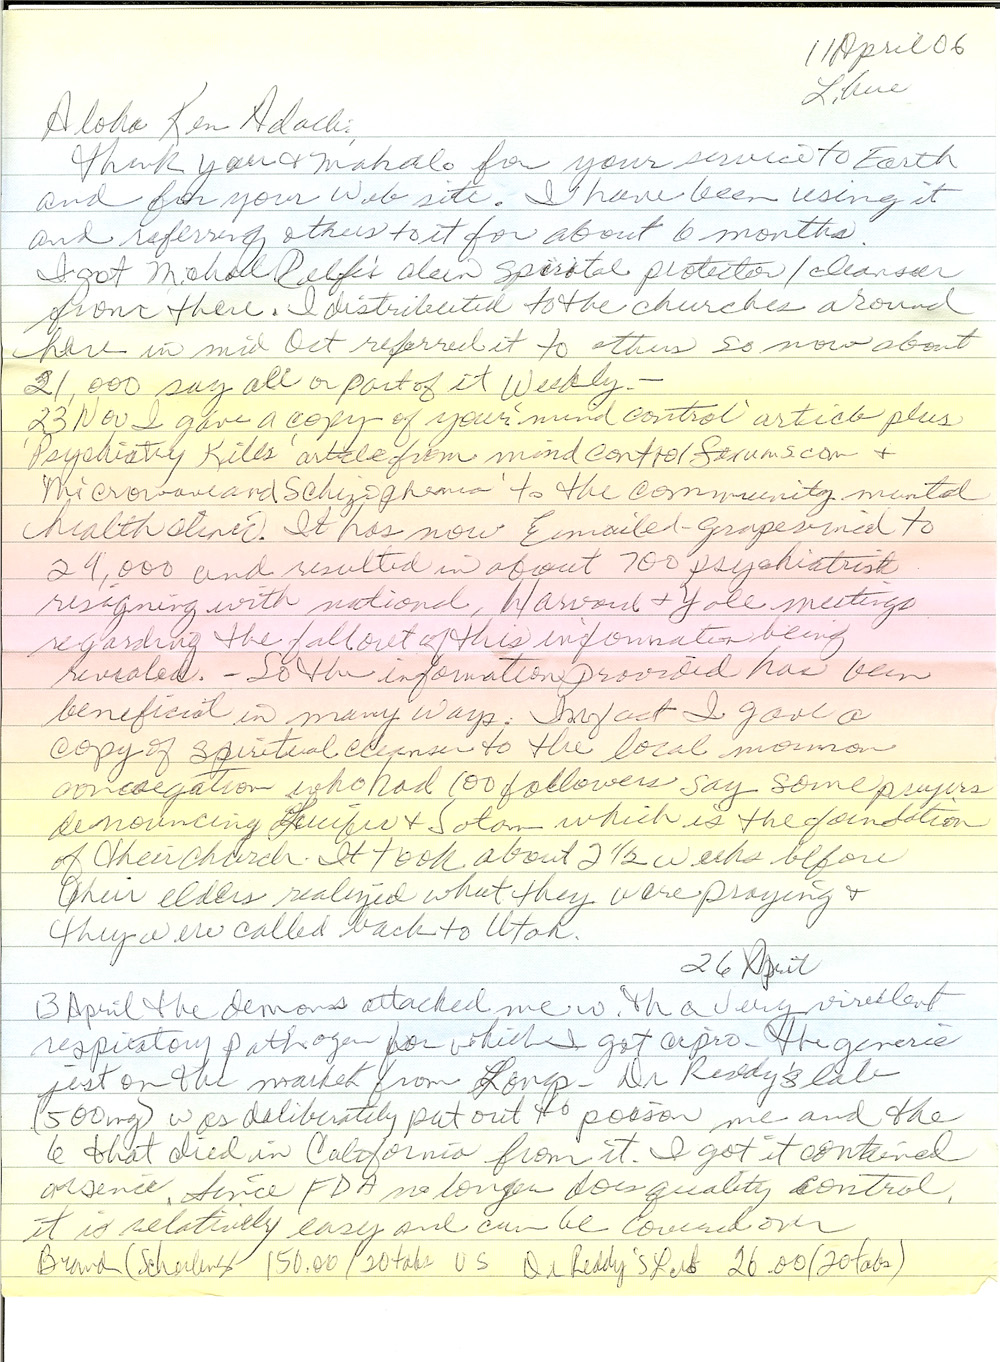 11 April 06
Lihue
Aloha Ken Adachi,
Thank you & Mahalo for your service to Earth
and for your web site. I have been using it
and referring others to it for about 6 months.
I got Michael Relfe's alein spirital protector/cleanser
from there. I distributed to the churches around
here in mid Oct referred it to others so now about
21,000 say all or part of it weekly. —
23 Nov I gave a copy of your 'mind control' article plus
'Psychiatry Kills' article from mind control forums com +
'Microwave and Schizophrenia' to the community mental
health clinic. It has now Emailed-grapevined to
29,000 and resulted in about 700 psychiatrist
resigning with national, Harvard + Yale meetings
regarding the fallout of this information being
revealed. - So the information provided has been
beneficial in many ways. In fact I gave a
copy of spiritual cleanser to the local mormon
congregation who had 100 followers say some prayers
denouncing Lucifer + Satan which is the foundation
of their church. It took about 2 1/2 weeks before
their elders realized what they were praying &
they were called back to Utah.
26 April
13 April the demons attacked me with a very virulent
respiratory pathogen for which I got cipro - the generic
just on the market from Longs - Dr Reddy's lab
(500mg) was deliberately put out to poison me and the
6 that died in California from it. I got it contained
arsenic. Since FDA no longer does quality control,
it is relatively easy and can be covered over
Brand ( 150.00/20tabs US Dr Reddy's Lab 26.00/(20tabs)